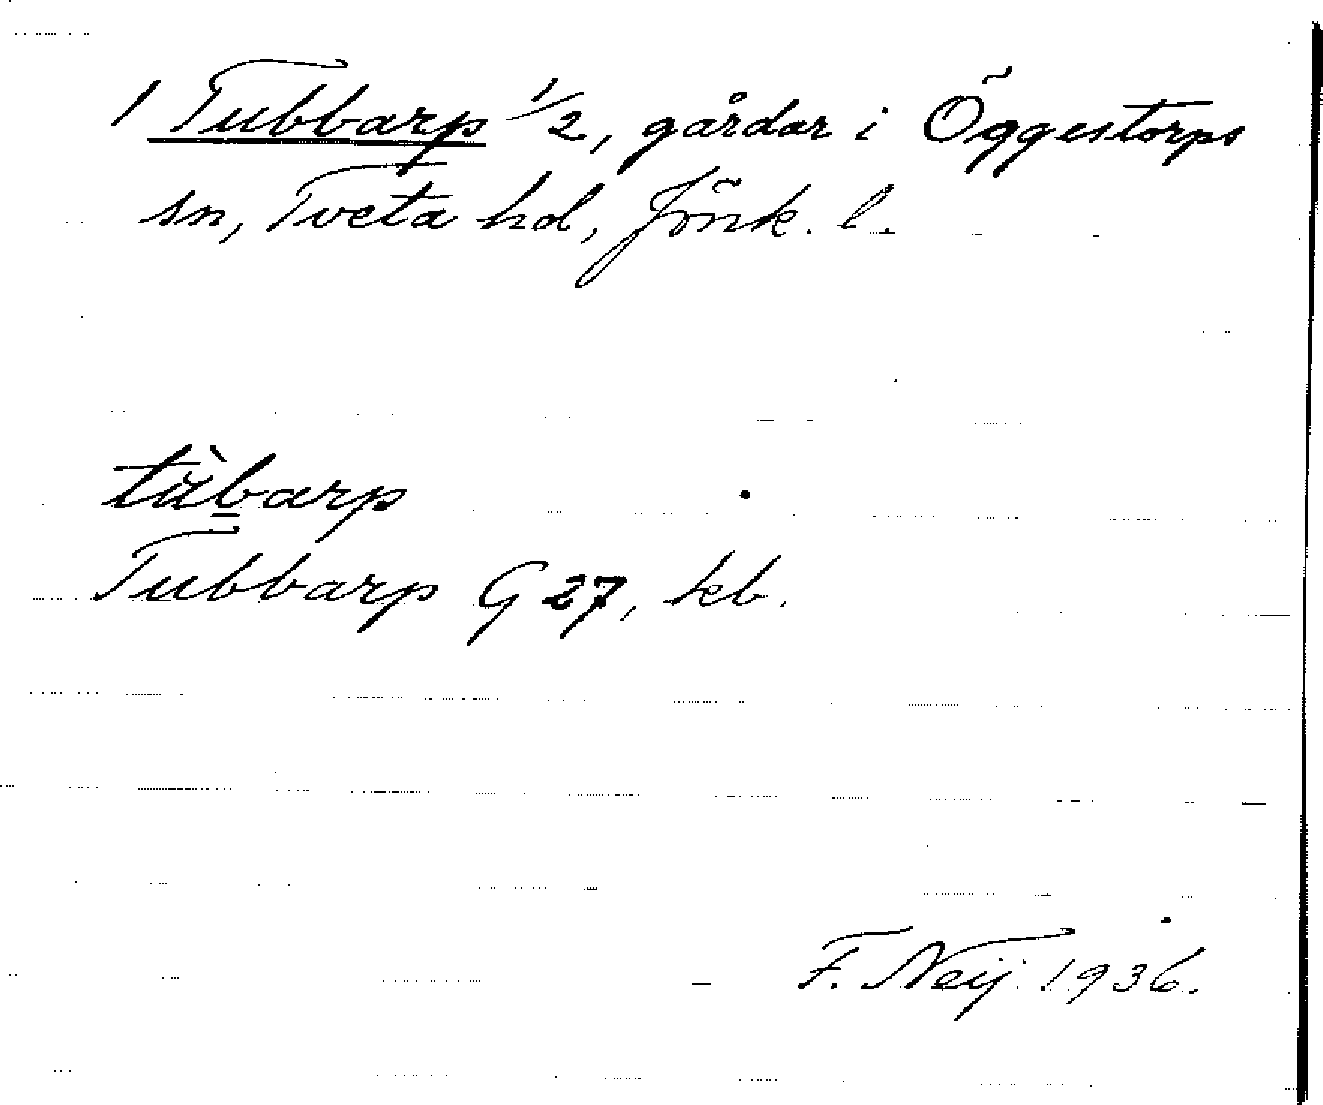 1 Tubbarp 1/2, gårdar i Öggestorps
sn, Tveta hd, Jönk. l.
tùb̲arp
Tubbarp G 27, kb.
F. Neij 1936.